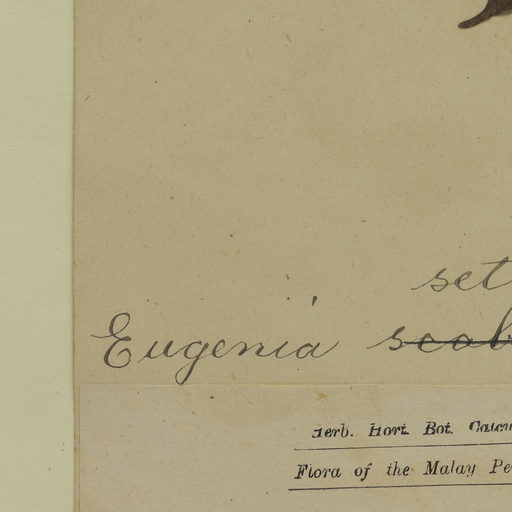 set
Eugenia scab
Herb. Hort. Bot. Calcu
Flora of the Malay Pe